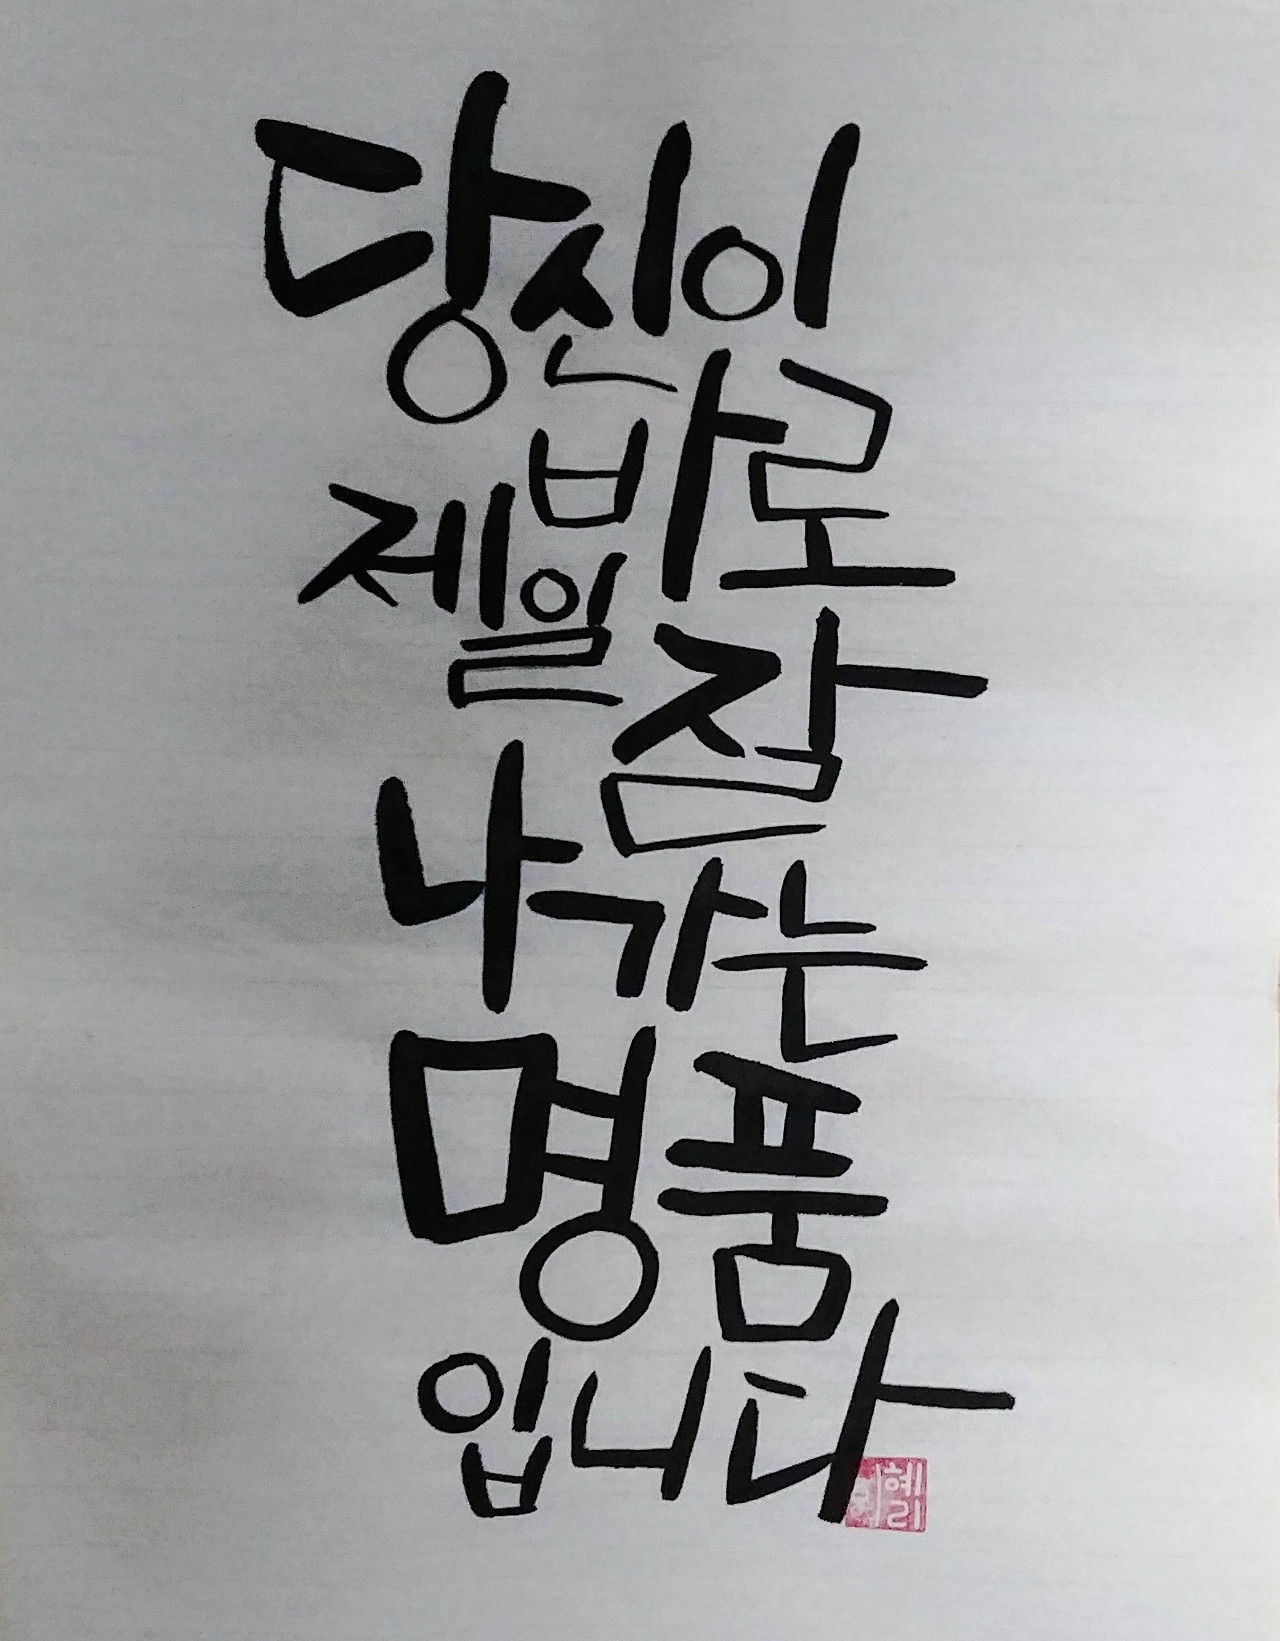 당신이
바로
제일 잘
나가는
명품
입니다
혜리